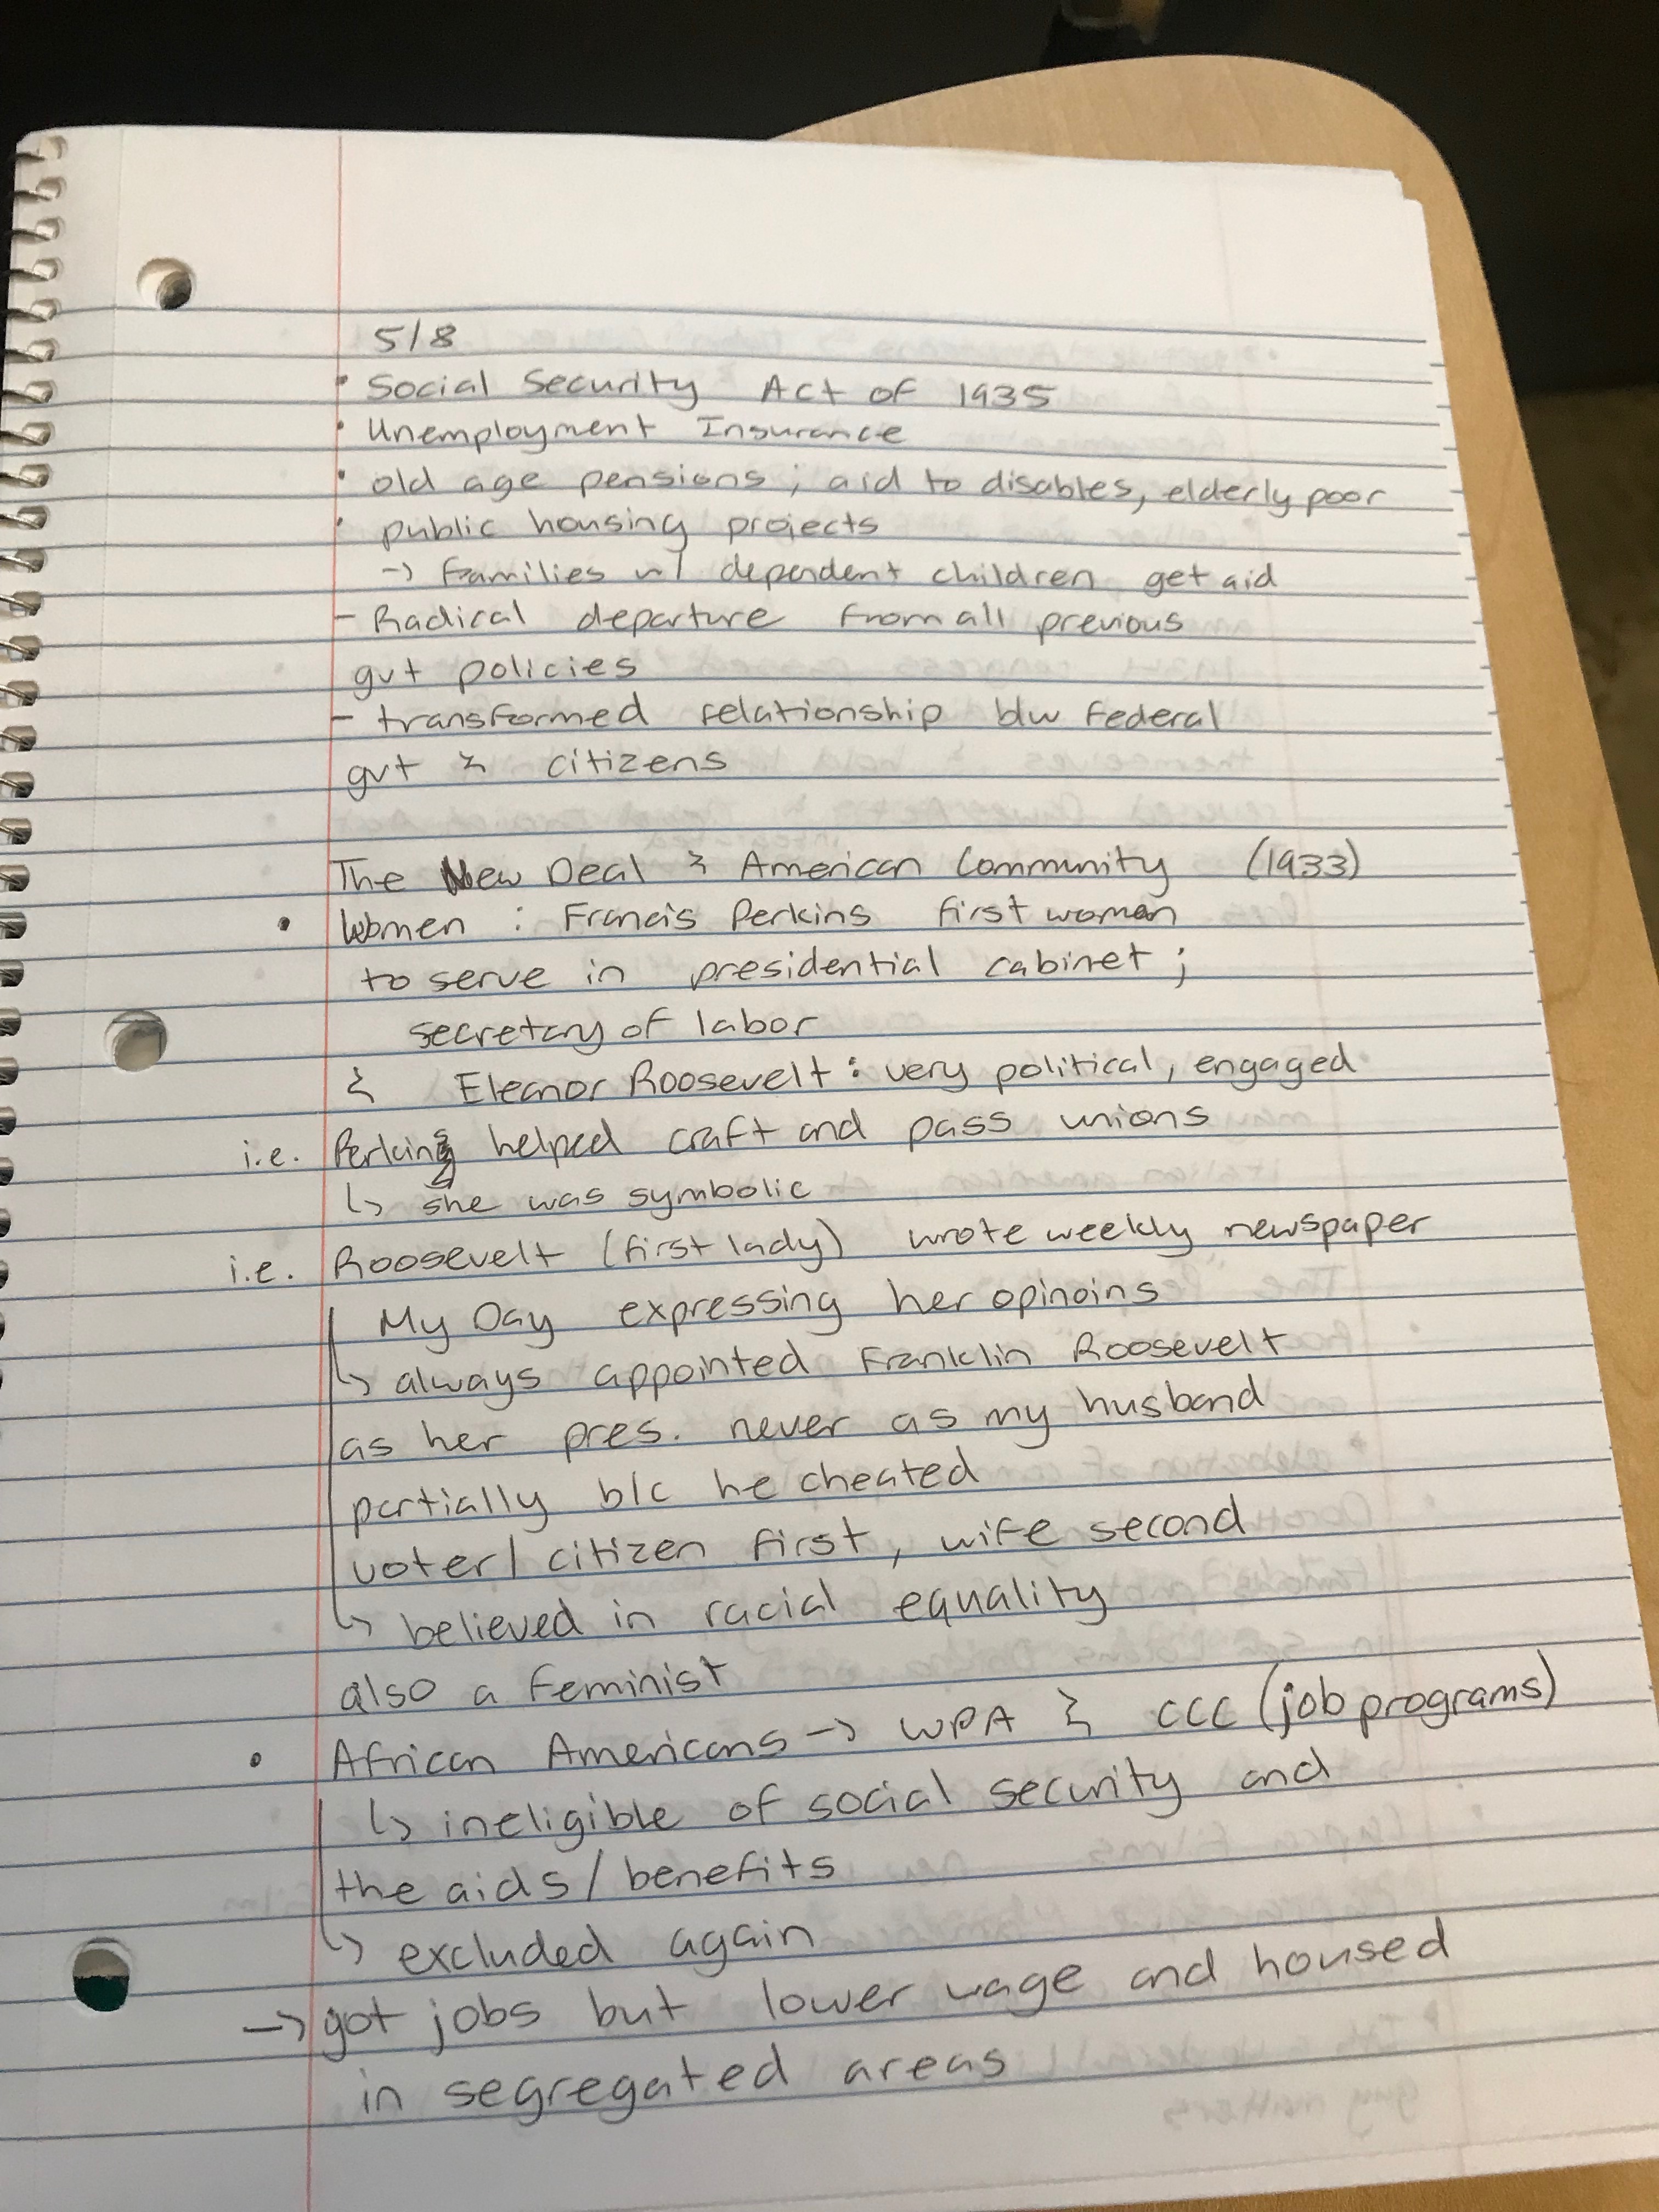 5/8
• Social Security Act of 1935
• Unemployment Insurance
• old age pensions ; aid to disables, elderly poor
• public housing projects
→ Families w/ dependent children get aid
- Radical departure from all previous
gvt policies
- transformed relationship b/w Federal
gvt & citizens
The New Deal & American Community (1933)
• Women : Francis Perkins first woman
to serve in presidential cabinet ;
secretary of labor
& Eleanor Roosevelt : very political, engaged
i.e. Perkins helped craft and pass unions
↳ she was symbolic
i.e. Roosevelt (first lady) wrote weekly newspaper
My Day expressing her opinoins
↳ always appointed Franklin Roosevelt
as her pres. never as my husband
partially b/c he cheated
voter/citizen first, wife second
↳ believed in racial equality
also a feminist
• African Americans → WPA & CCC (job programs)
↳ ineligible of social security and
the aids/benefits
↳ excluded again
→ got jobs but lower wage and housed
in segregated areas